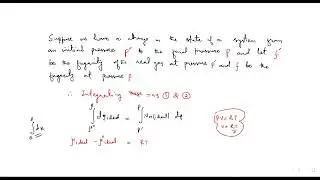 Suppose we have a change in the state of a system from
an initial pressure p' to the final pressure p and let f'
be the fugacity of the real gas at pressure p' and f be the
fugacity at pressure p
∴ Integrating these eqns ① & ②
∫ dμ ideal = ∫ Vm(ideal) dp
p' p p' p
PV = RT
V = RT/P
∫ dx
μ ideal - μ' ideal = RT